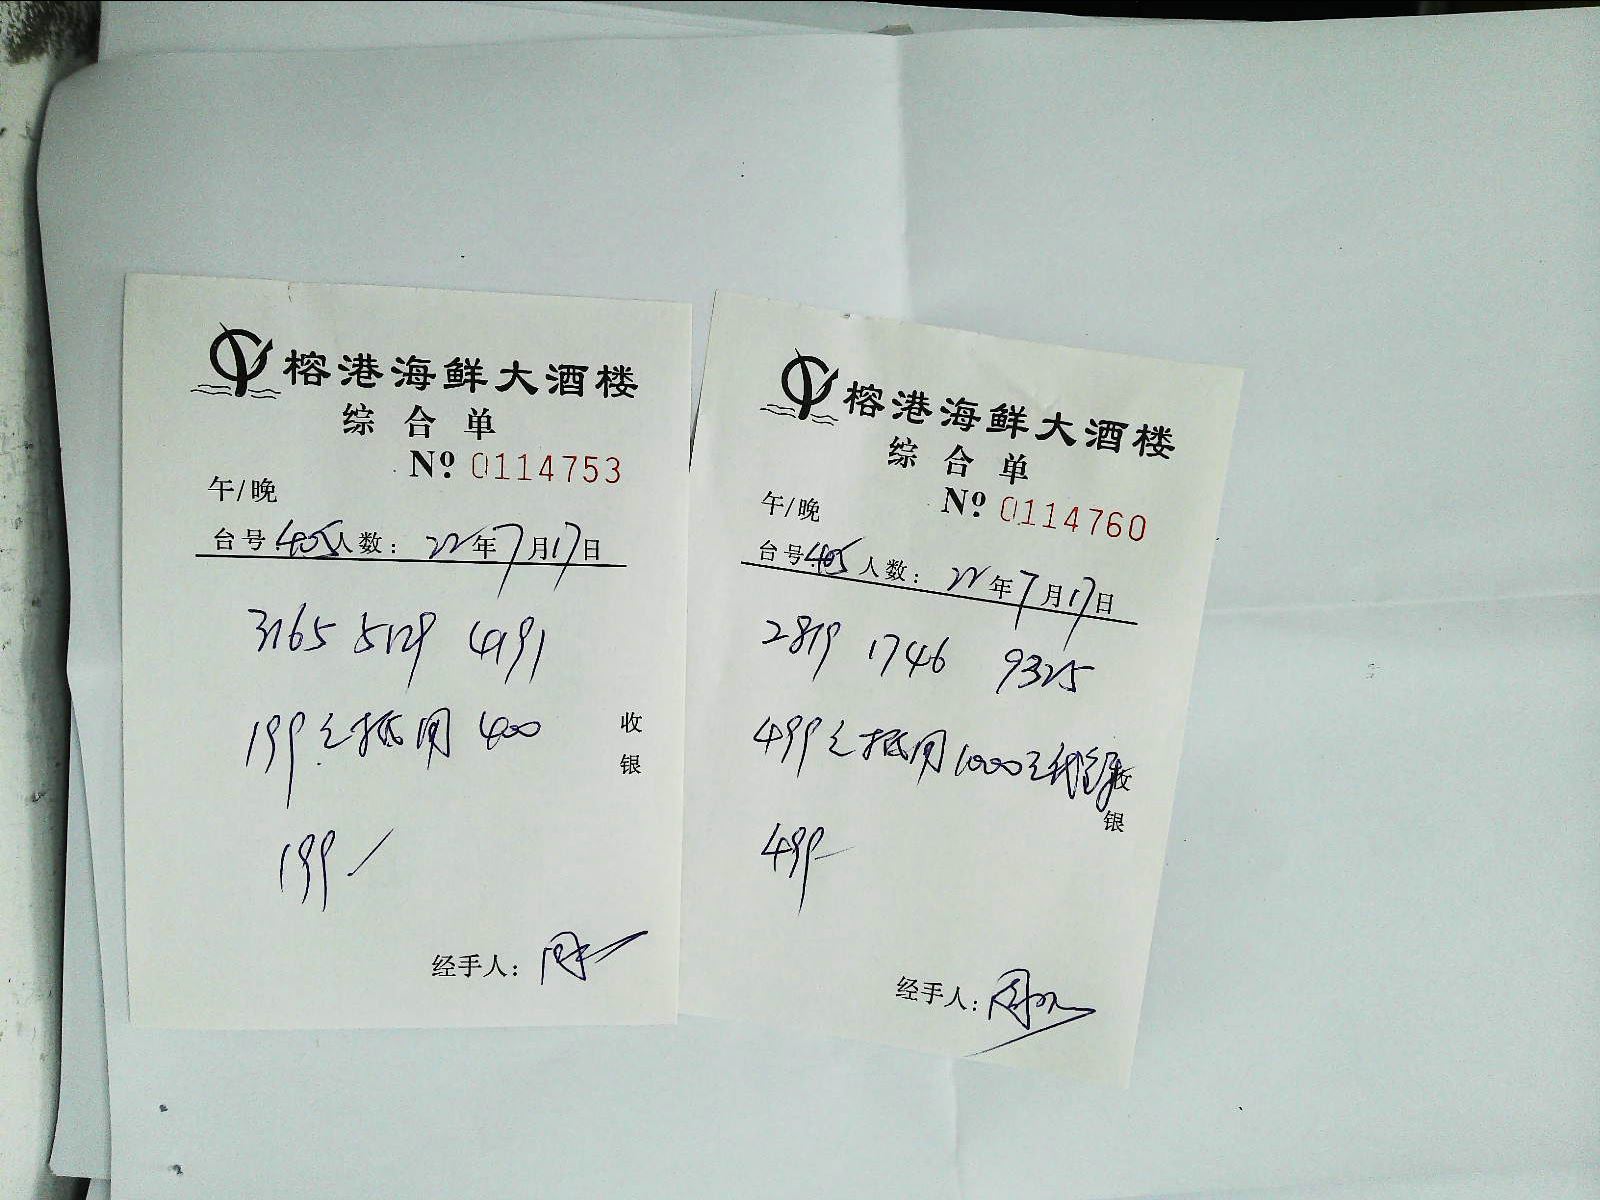 榕港海鲜大酒楼
综合单
№ 0114753
午/晚
台号:405人数: 22年7月17日
3165 5129 4191
199元抵用400
收
银
199
经手人:
榕港海鲜大酒楼
综合单
№ 0114760
午/晚
台号:405人数: 22年7月17日
2819 1746 9325
499元抵用1000元
收
银
499
经手人: